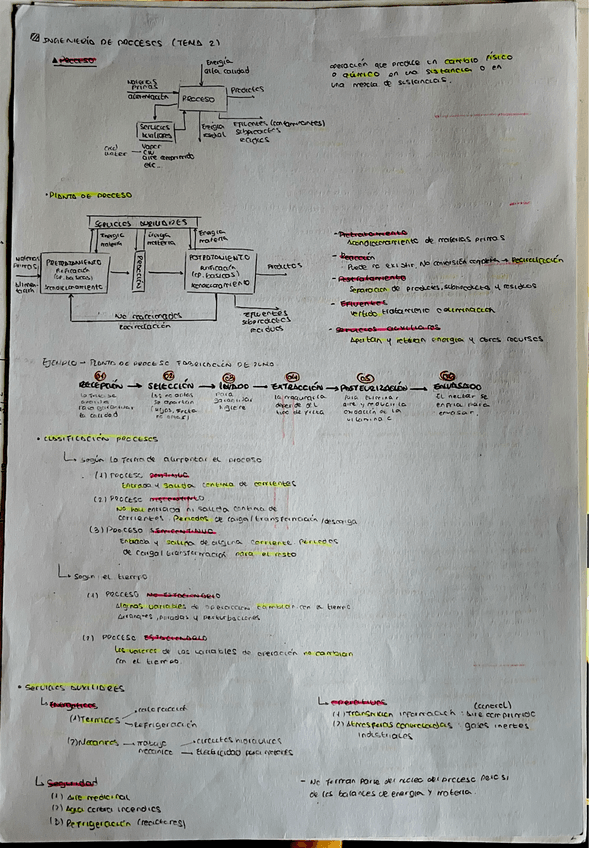 INGENIERÍA DE PROCESOS (TEMA 2)
▲ PROCESO
Energía
alta calidad
Materias
primas
alimentación
PROCESO
Productos
Servicios
auxiliares
Energía
residual
Efluentes (contaminantes)
subproductos
residuos
water
vapor
aire comprimido
etc...
operación que produce un cambio físico
o químico en una sustancia o en
una mezcla de sustancias.
• PLANTA DE PROCESO
SERVICIOS AUXILIARES
Energía
materia
Energía
materia
Energía
materia
Materias
primas
PRETRATAMIENTO
Purificación
(op. básicas)
Acondicionamiento
REACCIÓN
POSTRATAMIENTO
Purificación
(op. básicas)
Acondicionamiento
Productos
No reaccionados
recirculación
Efluentes
subproductos
residuos
- Pretratamiento
Acondicionamiento de materias primas
- Reacción
Puede no existir, No conversión completa → Recirculación
- Postratamiento
Separación de productos, subproductos y residuos
- Efluentes
Vertido, tratamiento o eliminación
- Servicios auxiliares
Aportan y retiran energía y otros recursos
EJEMPLO - PLANTA DE PROCESO FABRICACIÓN DE ZUMO
01 02 03 04 05 06
RECEPCIÓN → SELECCIÓN → LAVADO → EXTRACCIÓN → PASTEURIZACIÓN → ENVASADO
la calidad
los no aptos
se apartan
para
garantizar
higiene
la maquinaria
depende del
tipo de fruta
para eliminar
aire y reducir la
oxidación de la
vitamina C
El néctar se
enfría para
envasar.
• CLASIFICACIÓN PROCESOS
↳ Según la forma de alimentar el proceso
(1) PROCESO CONTINUO
Entrada y salida continua de corrientes
(2) PROCESO DISCONTINUO
No hay entrada ni salida continua de
corrientes. Periodos de carga/transformación/descarga
(3) PROCESO SEMICONTINUO
Entrada y salida de alguna corriente. Periodos
de carga/transformación para el resto
↳ Según el tiempo
(1) PROCESO NO ESTACIONARIO
Algunas variables de operación cambian con el tiempo
Arranques, paradas y perturbaciones
(2) PROCESO ESTACIONARIO
Los valores de las variables de operación no cambian
con el tiempo.
• SERVICIOS AUXILIARES
↳ Energéticos
(1) Térmicos
calefacción
Refrigeración
(2) Mecánicos → Trabajo
mecánico
→ circuitos hidráulicos
→ Electricidad para motores
↳ operativos
(control)
(1) Transmisión información: aire comprimido
(2) Atmósferas controladas: gases inertes
industriales
↳ Seguridad
(1) Aire medicinal
(2) Agua contra incendios
(3) Refrigeración (reactores)
- No forman parte del núcleo del proceso pero sí
de los balances de energía y materia.